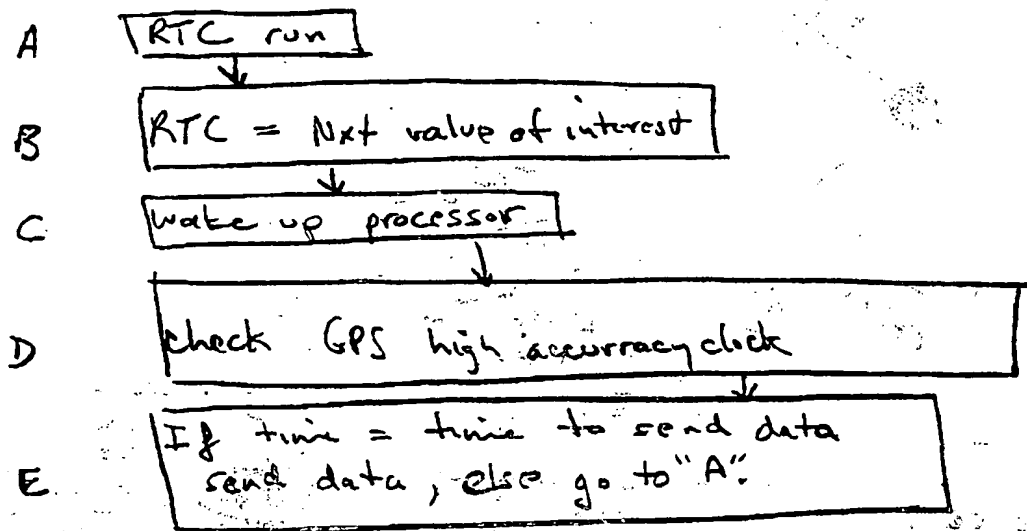 A RTC run
B RTC = Nxt value of interest
C wake up processor
D check GPS high accurracy clock
If time = time to send data
E send data, else go to "A".